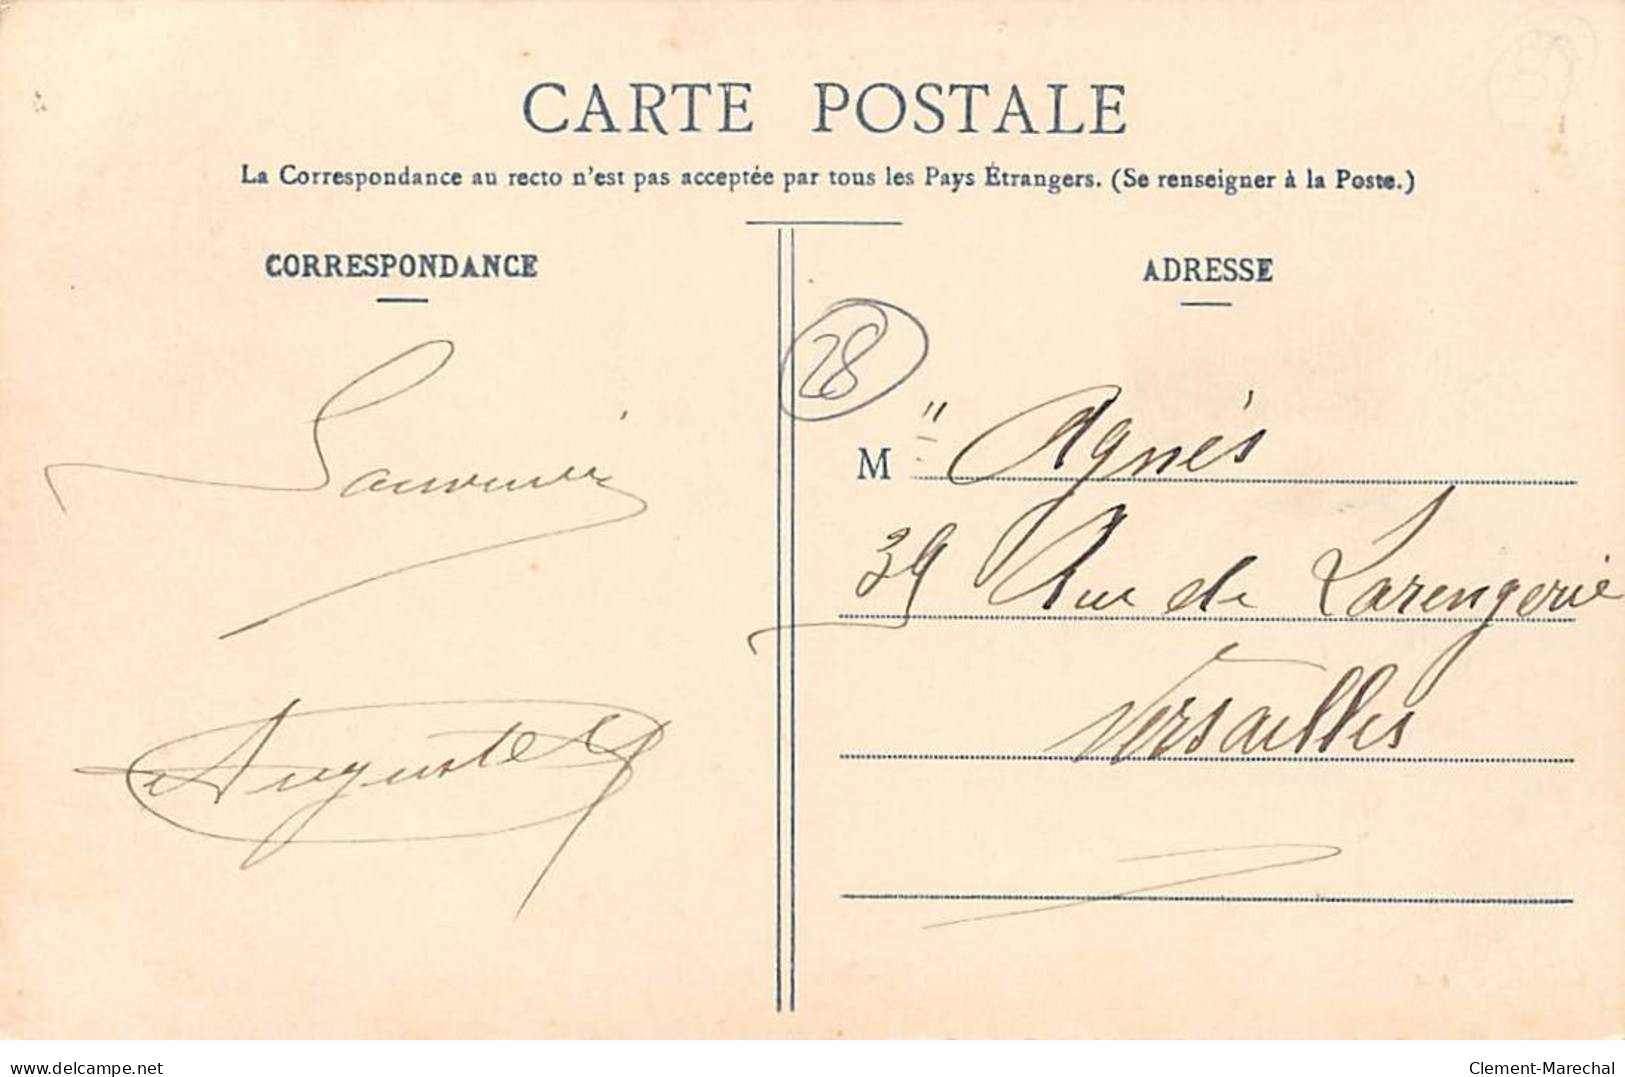 CARTE POSTALE
La Correspondance au recto n'est pas acceptée par tous les Pays Étrangers. (Se renseigner à la Poste.)
CORRESPONDANCE
Souvenir
Auguste
ADRESSE
28
M" Agnés
39 Rue de Larengerie
Versailles
delcampe.net
Clement-Marechal